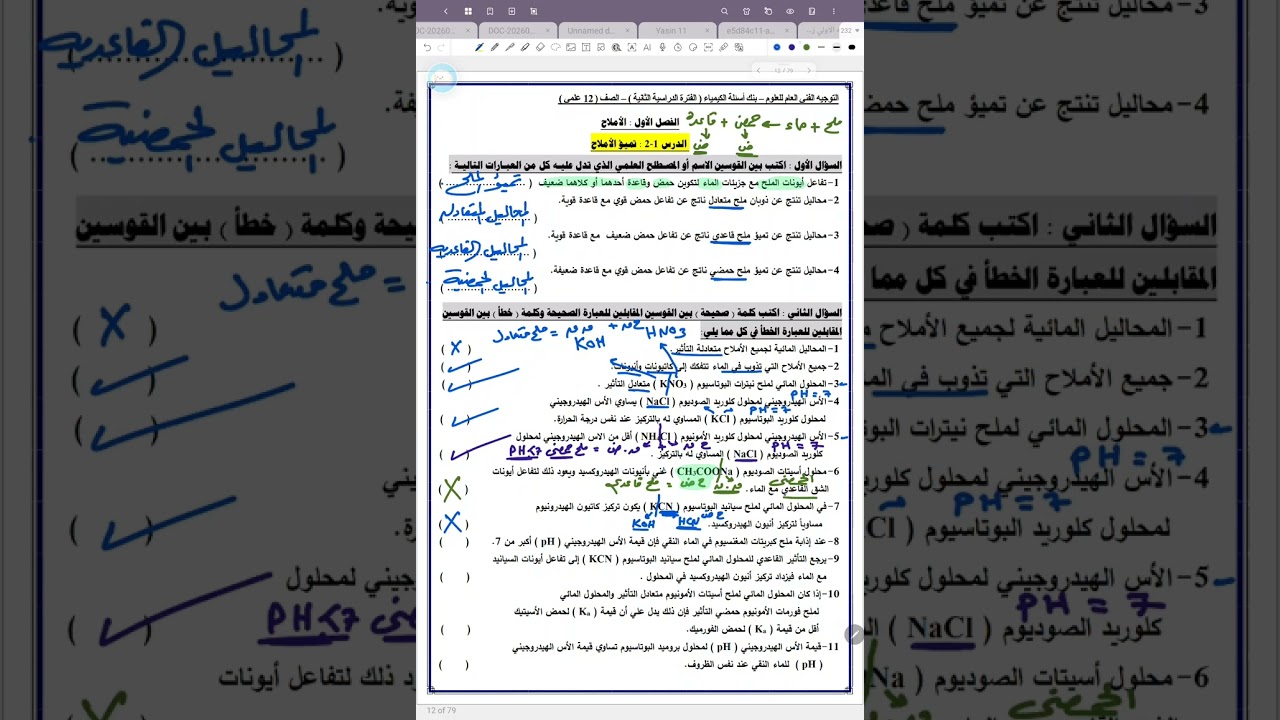 DOC-20260...
Unnamed d...
Yasin 11
e5d84c11-a...
12 / 79
التوجيه الفني العام للعلوم – بنك أسئلة الكيمياء ( الفترة الدراسية الثانية ) – الصف ( 12 علمي )
الفصل الأول : الأملاح
ملح + ماء ← حمض + قاعدة
ض ض
الدرس 1-2 : تميؤ الأملاح
السؤال الأول : اكتب بين القوسين الاسم أو المصطلح العلمي الذي تدل عليه كل من العبارات التالية :
1- تفاعل أيونات الملح مع جزيئات الماء لتكوين حمض وقاعدة أحدهما أو كلاهما ضعيف ( تميؤ الملح )
2- محاليل تنتج عن ذوبان ملح متعادل ناتج عن تفاعل حمض قوي مع قاعدة قوية.
( المحاليل المتعادلة )
3- محاليل تنتج عن تميؤ ملح قاعدي ناتج عن تفاعل حمض ضعيف مع قاعدة قوية.
( المحاليل القاعدية )
4- محاليل تنتج عن تميؤ ملح حمضي ناتج عن تفاعل حمض قوي مع قاعدة ضعيفة.
( المحاليل الحمضية )
السؤال الثاني : اكتب كلمة ( صحيحة ) بين القوسين المقابلين للعبارة الصحيحة وكلمة ( خطأ ) بين القوسين
المقابلين للعبارة الخطأ في كل مما يلي:
HNO3 + KOH = ملح متعادل
1- المحاليل المائية لجميع الأملاح متعادلة التأثير. ( X )
2- جميع الأملاح التي تذوب في الماء تتفكك إلى كاتيونات وأنيونات. ( ✓ )
3- المحلول المائي لملح نيترات البوتاسيوم ( KNO₃ ) متعادل التأثير . ( ✓ )
PH = 7
4- الأس الهيدروجيني لمحلول كلوريد الصوديوم ( NaCl ) يساوي الأس الهيدروجيني
PH = 7
لمحلول كلوريد البوتاسيوم ( KCl ) المساوي له بالتركيز عند نفس درجة الحرارة. ( ✓ )
5- الأس الهيدروجيني لمحلول كلوريد الأمونيوم ( NH₄Cl ) أقل من الاس الهيدروجيني لمحلول
PH = 7
ملح حمضي PH<7
كلوريد الصوديوم ( NaCl ) المساوي له بالتركيز . ( ✓ )
6- محلول أسيتات الصوديوم ( CH₃COONa ) غني بأنيونات الهيدروكسيد ويعود ذلك لتفاعل أيونات
الحمضي
ملح قاعدي
الشق القاعدي مع الماء. ( X )
7- في المحلول المائي لملح سيانيد البوتاسيوم ( KCN ) يكون تركيز كاتيون الهيدرونيوم
KOH HCN
مساوياً لتركيز أنيون الهيدروكسيد. ( X )
8- عند إذابة ملح كبريتات المغنسيوم في الماء النقي فإن قيمة الأس الهيدروجيني ( pH ) أكبر من 7. ( )
9- يرجع التأثير القاعدي للمحلول المائي لملح سيانيد البوتاسيوم ( KCN ) إلى تفاعل أيونات السيانيد
مع الماء فيزداد تركيز أنيون الهيدروكسيد في المحلول . ( )
10- إذا كان المحلول المائي لملح أسيتات الأمونيوم متعادل التأثير والمحلول المائي
لملح فورمات الأمونيوم حمضي التأثير فإن ذلك يدل علي أن قيمة ( Kₐ ) لحمض الأسيتيك
أقل من قيمة ( Kₐ ) لحمض الفورميك. ( )
11- قيمة الأس الهيدروجيني ( pH ) لمحلول بروميد البوتاسيوم تساوي قيمة الأس الهيدروجيني
( pH ) للماء النقي عند نفس الظروف. ( )
12 of 79